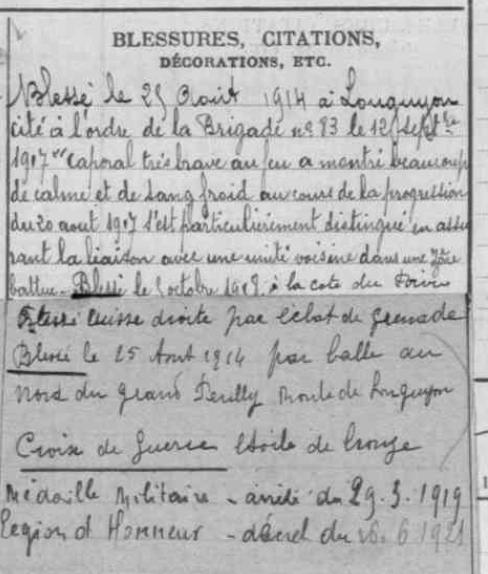 BLESSURES, CITATIONS,
DÉCORATIONS, ETC.
Blessé le 25 Aout 1914 à Longuyon
cité à l'ordre de la Brigade no 83 le 12 Septbre
1917 "Caporal très brave au feu a montré beaucoup
de calme et de sang froid au cours de la progression
du 20 aout 1917 s'est particulièrement distingué en assu
rant la liaison avec une unité voisine dans une zone
battue - Blessé le octobre à la cote du Poivre
Blessé cuisse droite par éclat de grenade
Blessé le 25 Aout 1914 par balle au
Nord du grand route de Longuyon
Croix de Guerre Etoile de bronze
Médaille Militaire - arrêté du 29.3.1919
Légion d'Honneur - décret du 6